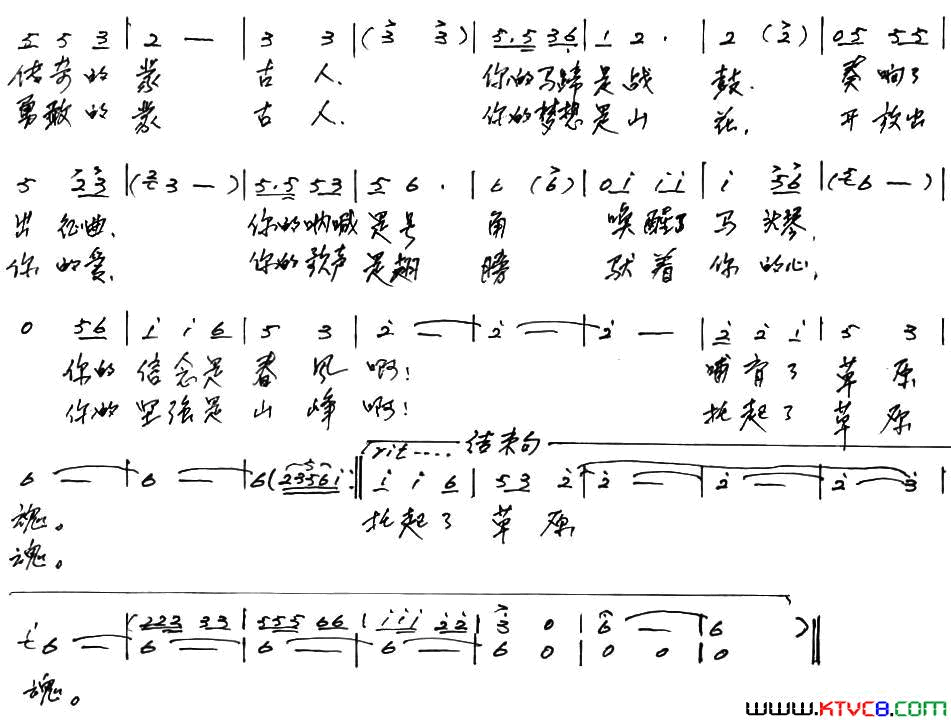 5 5 3 | 2 — | 3 3 | (3 3) | 5. 5 3 6 | 1 2 . | 2 (2) | 0 5 5 5 |
传奇的蒙 古人. 你的马蹄是战 鼓. 奏响了
勇敢的蒙 古人. 你的梦想是山 花, 开放出
5 2 3 | (2 3 — ) | 5. 5 5 3 | 5 6 . | 6 (6) | 0 i i i | i 5 6 | (5 6 — ) |
出征曲, 你的呐喊是号 角 唤醒了马头琴,
你的爱, 你的歌声是翅 膀 驮着你的心,
0 5 6 | i i 6 | 5 3 | 2 — | 2 — | 2 — | 2 2 i | 5 3 |
你的信念是春风啊! 哺育了草原
你的坚强是山峰啊! 托起了草原
rit.... 结束句
6 — | 6 — | 6 (2 3 5 6 i :‖ i i 6 | 5 3 2 | 2 — | 2 — | 2 3 |
魂。 托起了草原
魂。
i 6 — | (2 2 3 3 3 | 5 5 5 6 6 | i i i 2 2 | 3 0 | 6 — | 6 ) ‖
6 — | 6 — | 6 — | 6 0 | 0 0 | 0
魂。
www.KTVC8.com